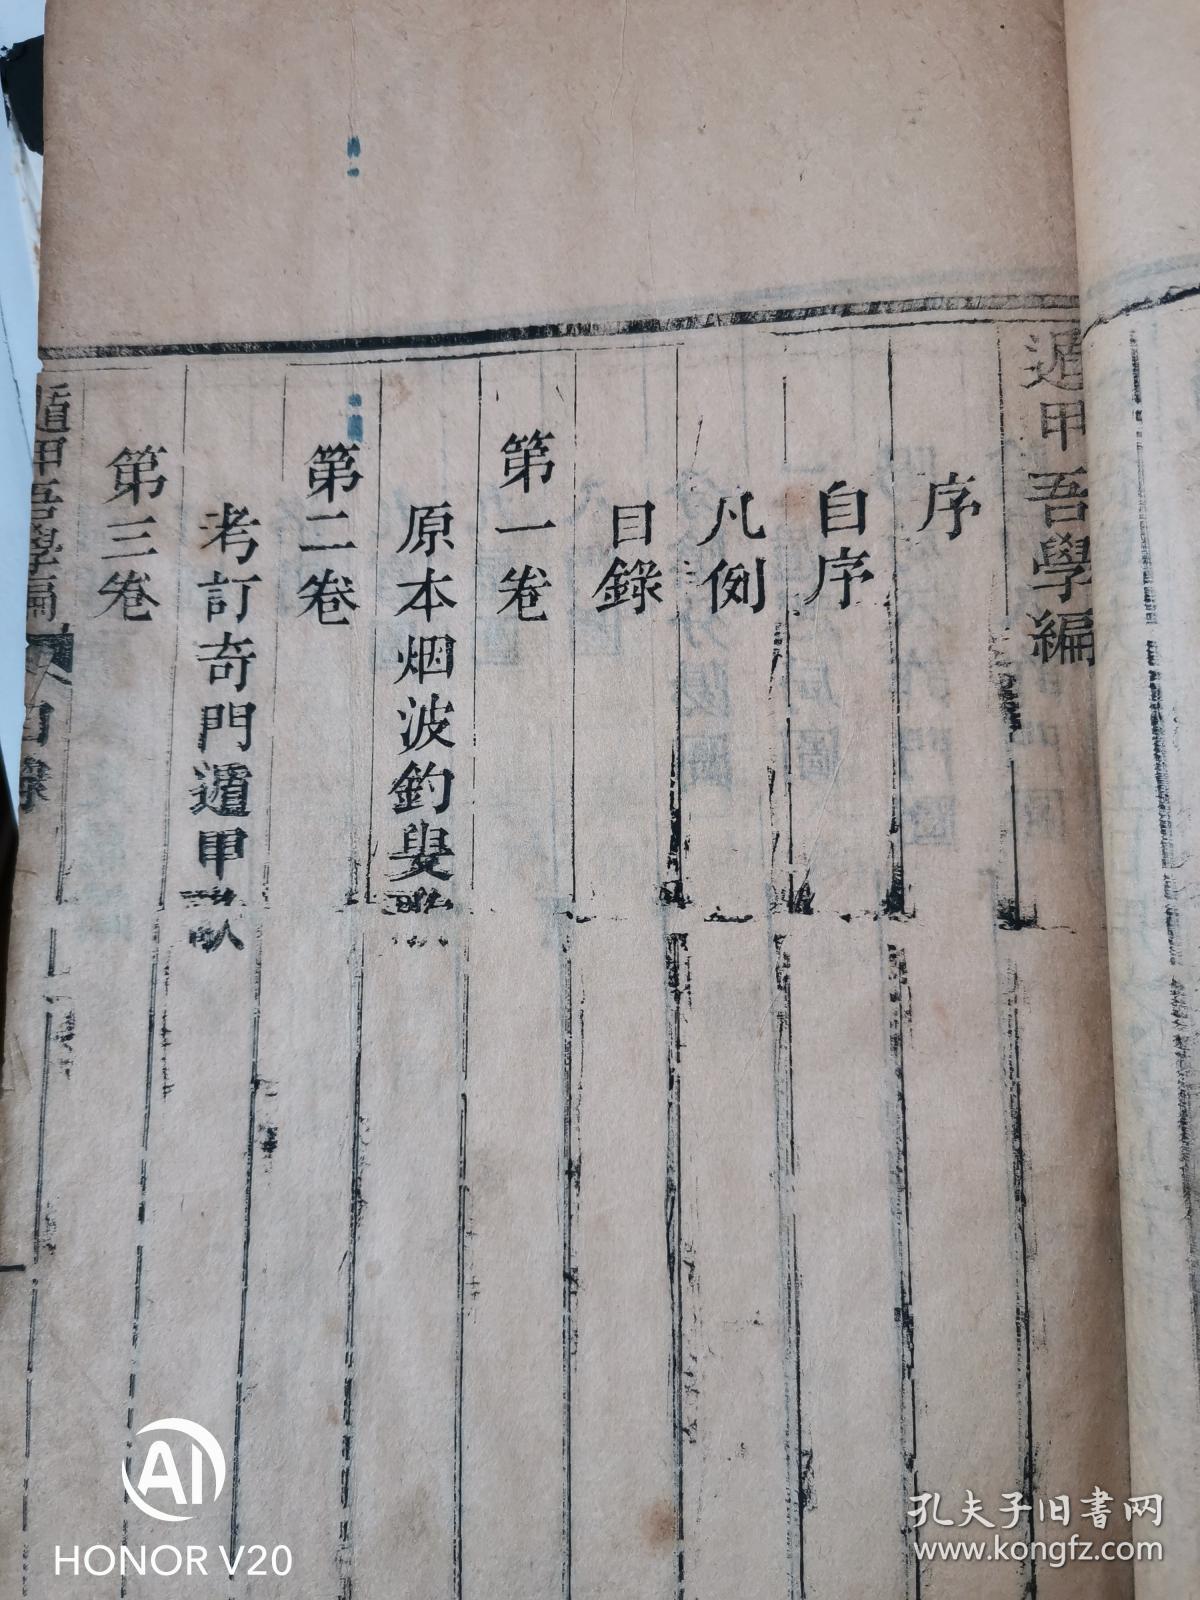 遁甲吾學編
序
自序
凡例
目錄
第一卷
原本烟波釣叟歌
第二卷
考訂奇門遁甲歌
第三卷
遁甲吾學編 目錄
AI
HONOR V20
孔夫子旧书网
www.kongfz.com